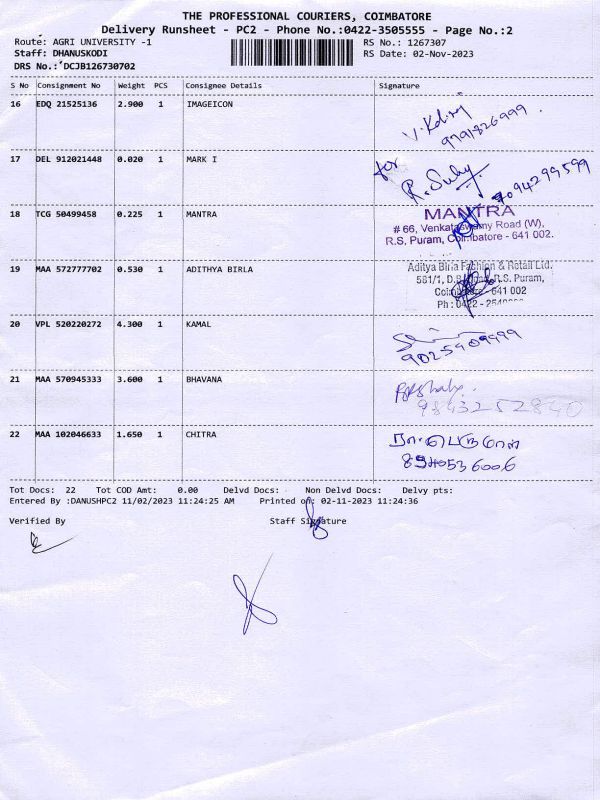 THE PROFESSIONAL COURIERS, COIMBATORE
Delivery Runsheet - PC2 - Phone No.:0422-3505555 - Page No.:2
Route: AGRI UNIVERSITY -1 RS No.: 1267307
Staff: DHANUSKODI RS Date: 02-Nov-2023
DRS No.: DCJB126730702
S No Consignment No Weight PCS Consignee Details Signature
16 EDQ 21525136 2.900 1 IMAGEICON
9791826999
17 DEL 912021448 0.020 1 MARK I
for
7094299599
18 TCG 50499458 0.225 1 MANTRA
MANTRA
# 66, Venkataswamy Road (W),
R.S. Puram, Coimbatore - 641 002.
19 MAA 572777702 0.530 1 ADITHYA BIRLA
Aditya Birla Fashion & Retail Ltd.
581/1, D.B. R.S. Puram,
Coimbatore - 641 002
Ph : 0422 -
20 VPL 520220272 4.300 1 KAMAL
9025909999
21 MAA 570945333 3.600 1 BHAVANA
9843252840
22 MAA 102046633 1.650 1 CHITRA
8940536006
Tot Docs: 22 Tot COD Amt: 0.00 Delvd Docs: Non Delvd Docs: Delvy pts:
Entered By :DANUSHPC2 11/02/2023 11:24:25 AM Printed on: 02-11-2023 11:24:36
Verified By Staff Signature